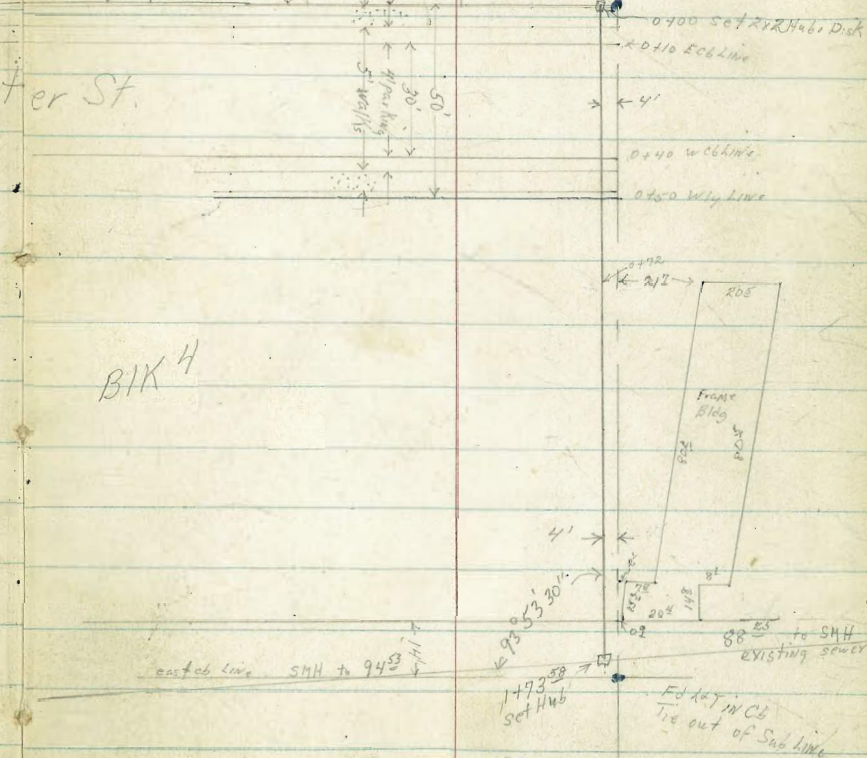 0+00 Set 2x2 Hub & Disk
0+10 E Cb Line
ter St.
5' Walks
4' parking
30'
50'
4'
0+40 W Cb Line
0+50 Wly Line
0+72
21 7
20 5
Blk 4
Frame
Bldg
80 5
80 5
4'
93° 53' 30"
15 3
7 8
8 1
14 8
20 4
0 9
88 25 to SMH
existing sewer
14'
east cb Line SMH to 94 53
1+73 58
Set Hub
Fd L&T in Cb
Tie out of Sub Line